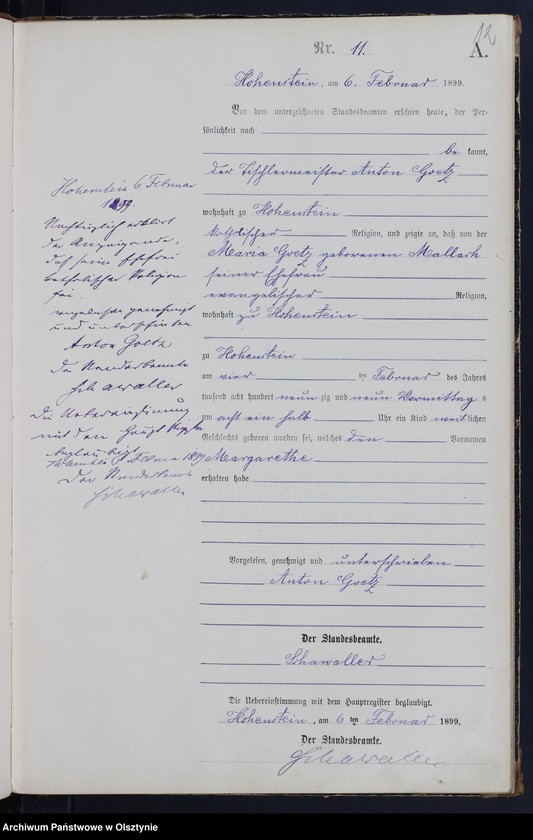 12
Nr. 11.
A.
Hohenstein, am 6. Februar 1899.
Vor dem unterzeichneten Standesbeamten erschien heute, der Per-
sönlichkeit nach
be kannt,
der Tischlermeister Anton Goetz
wohnhaft zu Hohenstein
katholischer Religion, und zeigte an, daß von der
Maria Goetz geborenen Mallach
seiner Ehefrau
evangelischer Religion,
wohnhaft zu Hohenstein
zu Hohenstein
am vier ten Februar des Jahres
tausend acht hundert neun zig und neun Vormittags
um acht ein halb Uhr ein Kind weiblichen
Geschlechts geboren worden sei, welches den Vornamen
Margarethe
erhalten habe
Vorgelesen, genehmigt und unterschrieben
Anton Goetz
Der Standesbeamte.
Schawaller
Die Uebereinstimmung mit dem Hauptregister beglaubigt.
Hohenstein, am 6 ten Februar 1899.
Der Standesbeamte.
Schawaller
Hohenstein 6 Februar
1899
Nachträglich erklärt
der Anzeigende,
daß seine Ehefrau
katholischer Religion
sei.
vorgelesen genehmigt
und unterschrieben
Anton Goetz
Der Standesbeamte
Schawaller
Die Uebereinstimmung
mit dem Haupt
beglaubigt
Hohenstein 6 Februar 1899
Der Standesbeamte
Schawaller
Archiwum Państwowe w Olsztynie